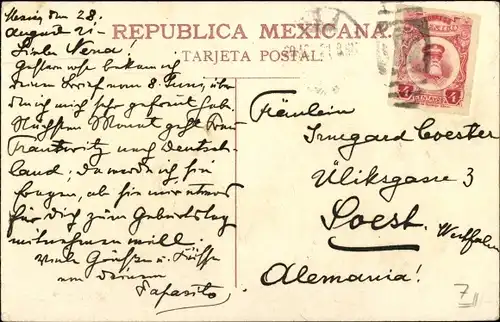 REPUBLICA MEXICANA.
TARJETA POSTAL
den 28.
August 21-
Liebe Nena!
Gestern bekam ich
deinen Brief vom 8. Juni, über
den ich mich sehr gefreut habe.
Nächsten Monat geht Frau
Trautwitz nach Deutsch-
land; da werde ich sie
fragen, ob sie mir etwas
für Dich zum Geburtstag
mitnehmen will.
Viele Grüße u. Küsse
von deinem
Papasito
4 4
Fräulein
Irmgard Coester
Üliksgasse 3
Soest.
Westfalen
Alemania!
7